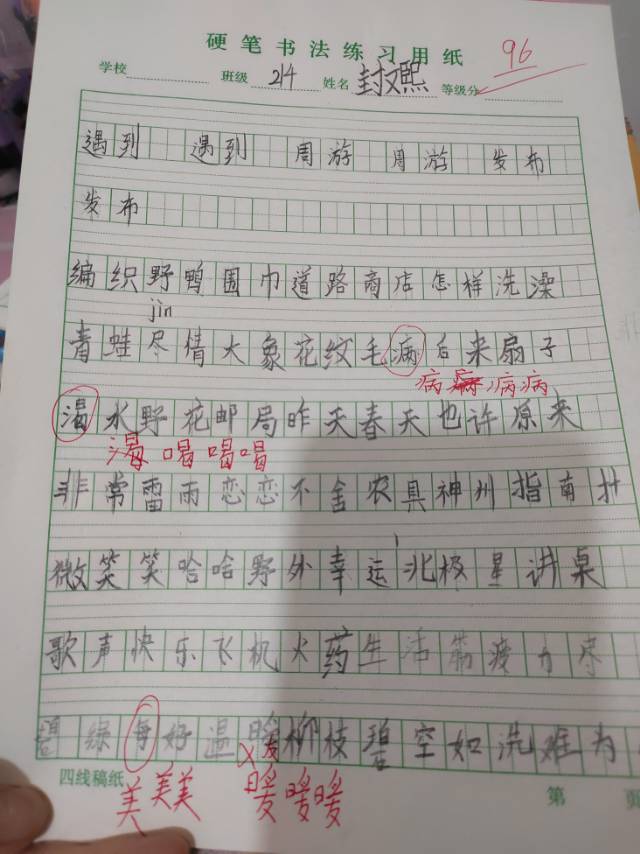 硬笔书法练习用纸
96
学校 班级 214 姓名 封又熙 等级分
遇到 遇到 周游 周游 发布
发布
编织野鸭围巾道路商店怎样洗澡
jìn
青蛙尽情大象花纹毛病后来扇子
病 病 病
渴水野花邮局昨天春天也许原来
渴 喝 喝 喝
非常雷雨恋恋不舍农具神州指南
微笑笑哈哈野外幸运北极星讲桌
歌声快乐飞机火药生活筋疲力尽
绿每好温暖柳枝碧空如洗难为
美 美 美 暖 暖 暖
四线稿纸 第 页